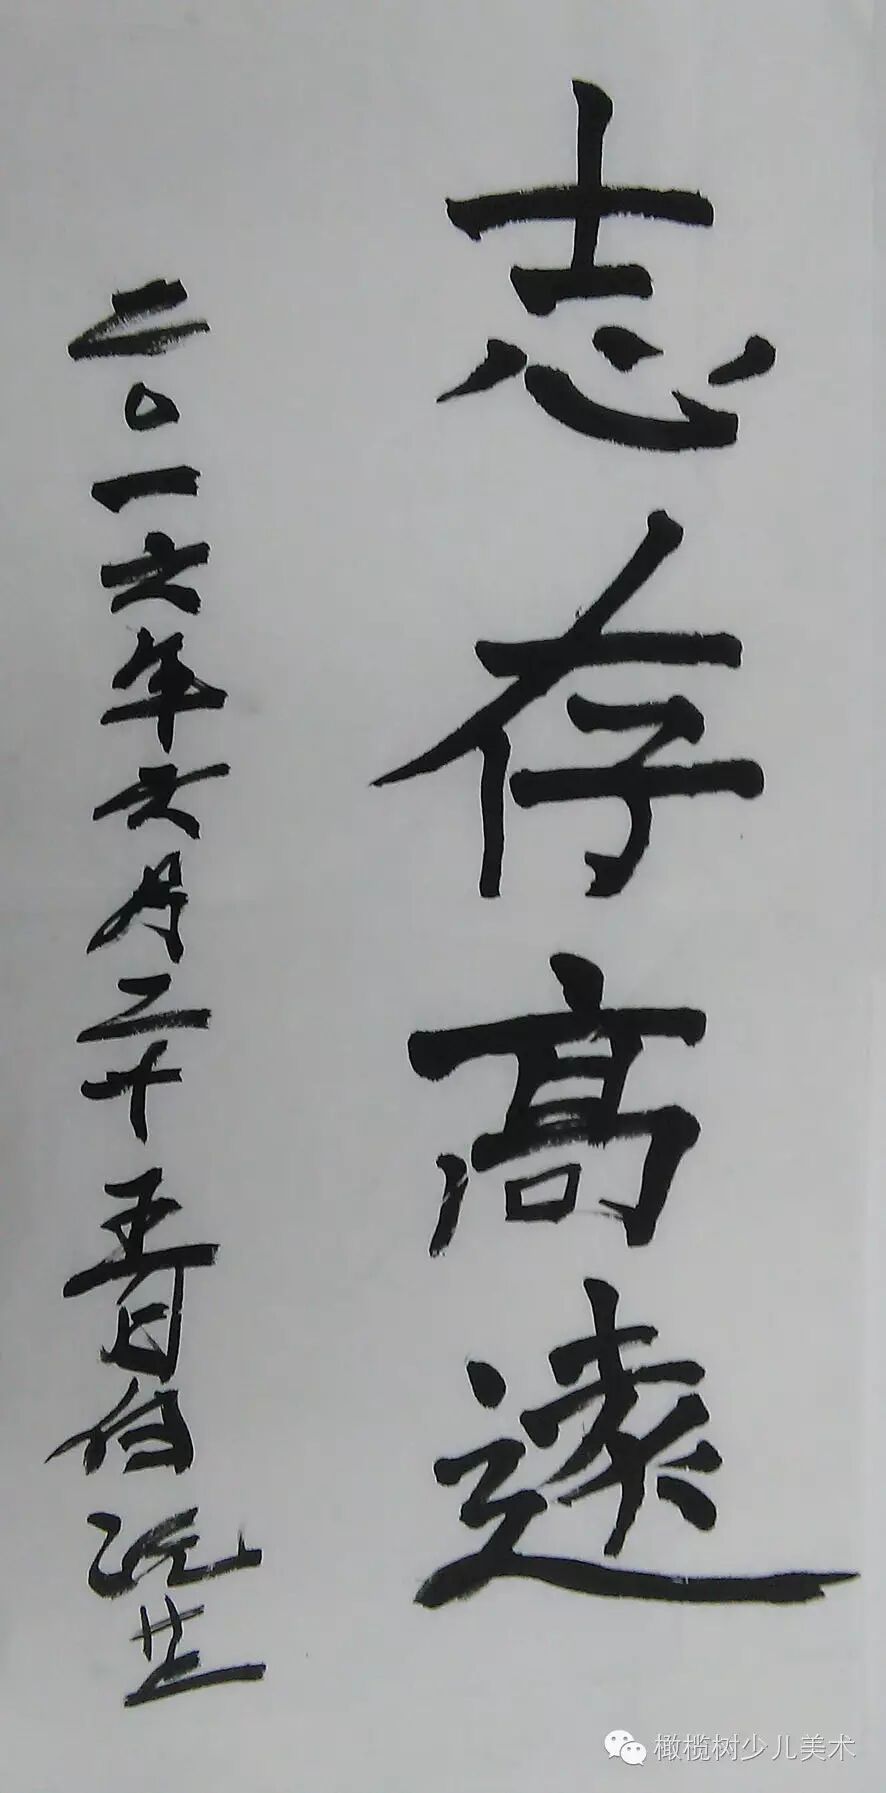 志存高遠
二〇一六年六月二十五日
橄榄树少儿美术